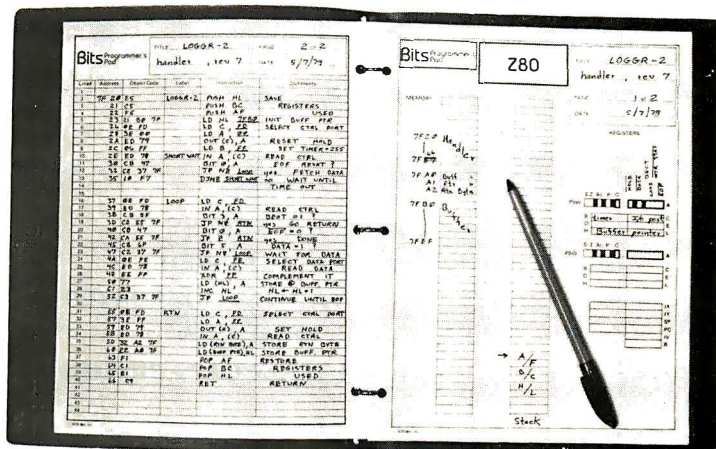 Bits Programmer's Pad
TITLE LOGGR-2 PAGE 2 of 2
handler, rev 7 DATE 5/7/79
Line# Address Object Code Label Instruction Comments
7F 20 E5 LOGGR-2 PUSH HL SAVE
21 C5 PUSH BC REGISTERS
22 F5 PUSH AF USED
23 21 B0 7F LD HL 7FB0 INIT BUFF PTR
26 0E FD LD C, FD SELECT CTRL PORT
ED 79 OUT (C), A RESET HOLD
2C 06 FF LD B, FF SET TIMER=255
2E ED 78 SHORT WAIT IN A, (C) READ CTRL
30 CB 47 BIT 0, A EOF RESET ?
32 C2 37 7F JP NZ LOOP yes, FETCH DATA
35 10 F7 DJNZ SHORT WAIT no WAIT UNTIL
TIME OUT
37 0E FD LOOP LD C, FD
39 ED 78 IN A, (C) READ CTRL
BIT 3, A
RTN yes GO RETURN
CB 47 BIT 0, A EOF = 0
RTN yes DONE
BIT 5, A DATA = 1 ?
C2 37 7F JP NZ LOOP WAIT FOR DATA
LD C, FE SELECT DATA PORT
ED 78 IN A, (C) READ DATA
EE FF XOR FF COMPLEMENT IT
77 LD (HL), A STORE @ BUFF PTR
23 INC HL HL ← HL+1
52 C3 37 7F JP LOOP CONTINUE UNTIL EOF
55 0E FD RTN LD C, FD SELECT CTRL PORT
57 3E FF LD A, FF
59 ED 79 OUT (C), A SET HOLD
5B ED 78 IN A, (C) READ CTRL
32 A2 7F LD (RTN BYTE), A STORE RTN BYTE
22 A0 7F LD (BUFF PTR), HL STORE BUFF. PTR
63 F1 POP AF RESTORE
64 C1 POP BC REGISTERS
65 E1 POP HL USED
66 C9 RET RETURN
Bits Programmer's Pad
Z80
TITLE LOGGR-2
handler, rev 7
PAGE 1 of 2
DATE 5/7/79
MEMORY
REGISTERS
7F20 Handler
7FA0 Buff
A1 Ptr
A2 Rtn Byte
7FB0 Buffer
7FEF
PSW
timer I/O port
Buffer pointer
PSW
IX
IY
SP
PC
IV
R
→ A/F
B/C
H/L
Stack